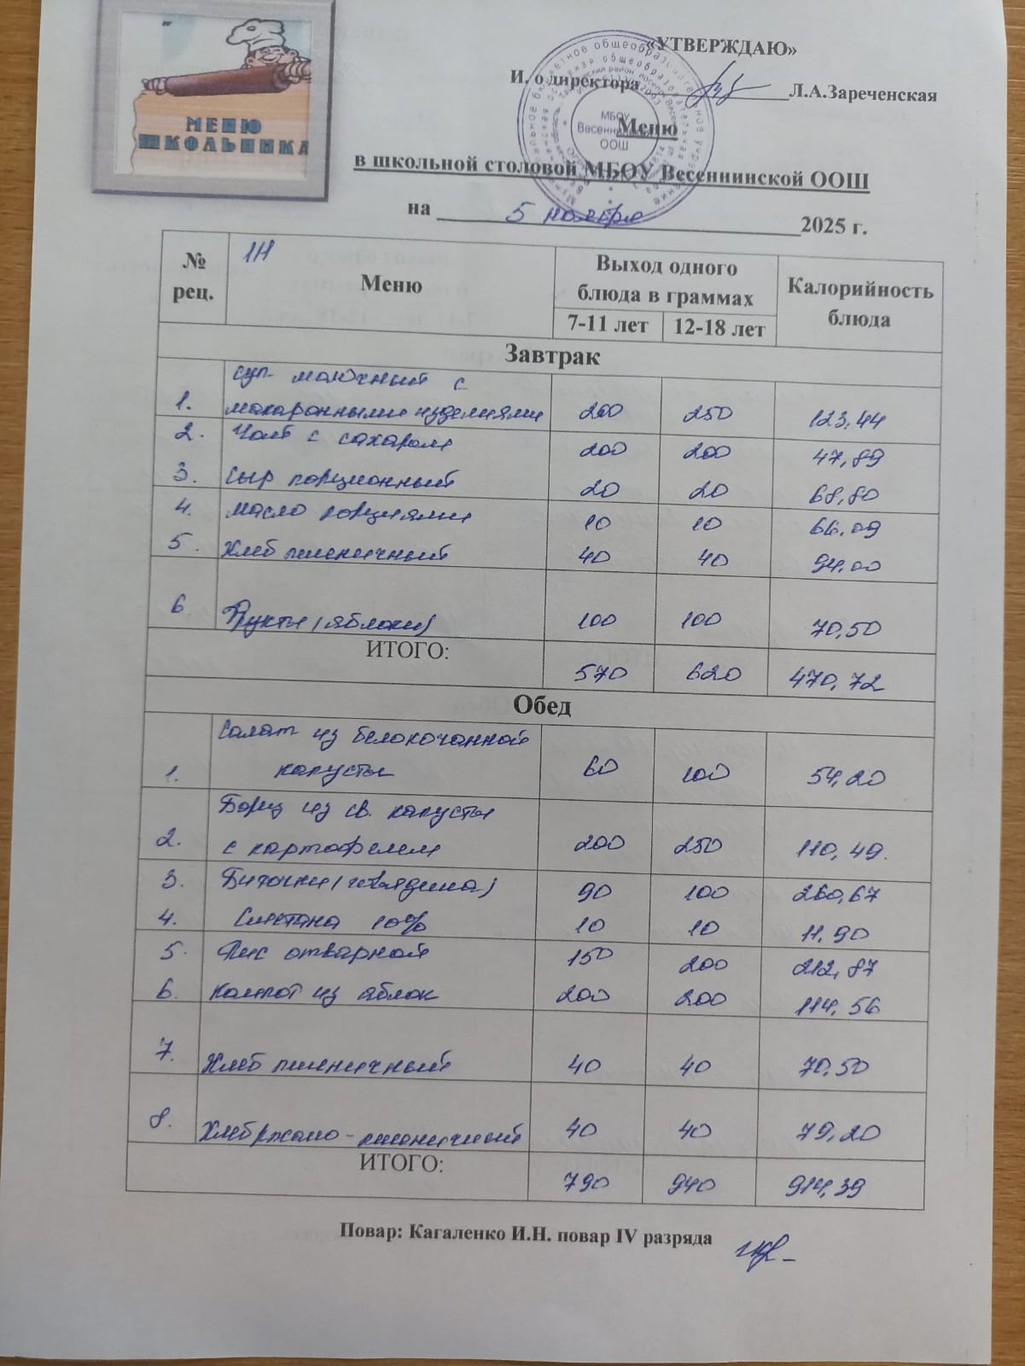 МЕНЮ
ШКОЛЬНИКА
«УТВЕРЖДАЮ»
И. о директора Л.А.Зареченская
МБОУ
Весеннинская
ООШ
Меню
в школьной столовой МБОУ Весеннинской ООШ
на 5 ноября 2025 г.
№ рец. 1Н Меню Выход одного блюда в граммах Калорийность блюда
7-11 лет 12-18 лет
Завтрак
1. Суп молочный с макаронными изделиями 200 250 123,44
2. Чай с сахаром 200 200 47,89
3. Сыр порционный 20 20 68,80
4. Масло порциями 10 10 66,09
5. Хлеб пшеничный 40 40 94,00
6 Фрукты (яблоки) 100 100 70,50
ИТОГО: 570 620 470,72
Обед
1. Салат из белокочанной капусты 60 100 54,20
2. Борщ из св. капусты с картофелем 200 250 110,49.
3. Биточки (говядина) 90 100 260,67
4. Сметана 10% 10 10 11,90
5. Рис отварной 150 200 212,87
6. Компот из яблок 200 200 114,56
7. Хлеб пшеничный 40 40 70,50
8. Хлеб ржано-пшеничный 40 40 79,20
ИТОГО: 790 940 914,39
Повар: Кагаленко И.Н. повар IV разряда